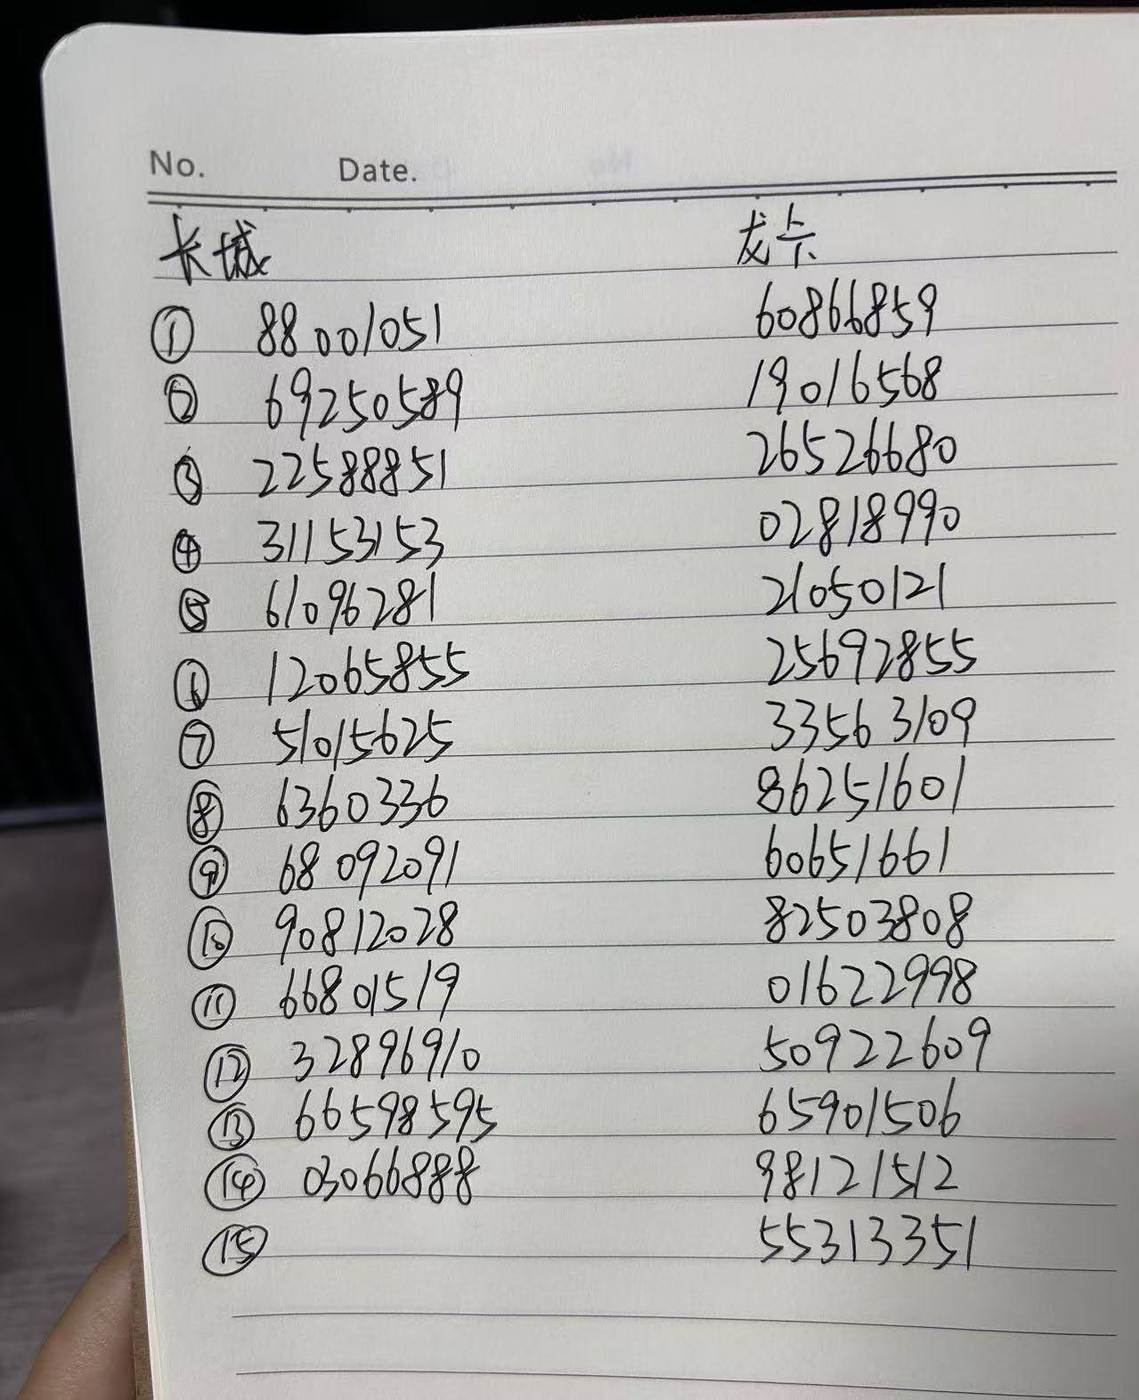 No. Date.
长城 龙卡
① 88001051 60866859
② 69250589 19016568
③ 22588851 26526680
④ 31153153 02818990
⑤ 61096281 21050121
⑥ 12065855 25692855
⑦ 51015625 33563109
⑧ 6360336 86251601
⑨ 68092091 60651661
⑩ 90812028 82503808
⑪ 66801519 01622998
⑫ 32896910 50922609
⑬ 66598595 65901506
⑭ 03066888 98121512
⑮ 55313351